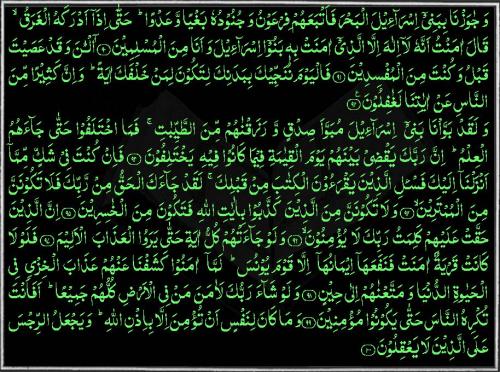 وَ جٰوَزْنَا بِبَنِیْۤ اِسْرَآءِیْلَ الْبَحْرَ فَاَتْبَعَهُمْ فِرْعَوْنُ وَ جُنُوْدُهٗ بَغْیًا وَّ عَدْوًا ؕ حَتّٰۤی اِذَاۤ اَدْرَكَهُ الْغَرَقُ ۙ
قَالَ اٰمَنْتُ اَنَّهٗ لَاۤ اِلٰهَ اِلَّا الَّذِیْۤ اٰمَنَتْ بِهٖ بَنُوْۤا اِسْرَآءِیْلَ وَ اَنَا مِنَ الْمُسْلِمِیْنَ ﴿۹۰﴾ آٰلْـٰٔنَ وَ قَدْ عَصَیْتَ
قَبْلُ وَ كُنْتَ مِنَ الْمُفْسِدِیْنَ ﴿۹۱﴾ فَالْیَوْمَ نُنَجِّیْكَ بِبَدَنِكَ لِتَكُوْنَ لِمَنْ خَلْفَكَ اٰیَةً ؕ وَ اِنَّ كَثِیْرًا مِّنَ
النَّاسِ عَنْ اٰیٰتِنَا لَغٰفِلُوْنَ ﴿۹۲﴾
وَ لَقَدْ بَوَّاْنَا بَنِیْۤ اِسْرَآءِیْلَ مُبَوَّاَ صِدْقٍ وَّ رَزَقْنٰهُمْ مِّنَ الطَّیِّبٰتِ ۚ فَمَا اخْتَلَفُوْا حَتّٰی جَآءَهُمُ
الْعِلْمُ ؕ اِنَّ رَبَّكَ یَقْضِیْ بَیْنَهُمْ یَوْمَ الْقِیٰمَةِ فِیْمَا كَانُوْا فِیْهِ یَخْتَلِفُوْنَ ﴿۹۳﴾ فَاِنْ كُنْتَ فِیْ شَكٍّ مِّمَّاۤ
اَنْزَلْنَاۤ اِلَیْكَ فَسْـَٔلِ الَّذِیْنَ یَقْرَءُوْنَ الْكِتٰبَ مِنْ قَبْلِكَ ۚ لَقَدْ جَآءَكَ الْحَقُّ مِنْ رَّبِّكَ فَلَا تَكُوْنَنَّ
مِنَ الْمُمْتَرِیْنَ ﴿۹۴﴾ وَ لَا تَكُوْنَنَّ مِنَ الَّذِیْنَ كَذَّبُوْا بِاٰیٰتِ اللّٰهِ فَتَكُوْنَ مِنَ الْخٰسِرِیْنَ ﴿۹۵﴾ اِنَّ الَّذِیْنَ
حَقَّتْ عَلَیْهِمْ كَلِمَتُ رَبِّكَ لَا یُؤْمِنُوْنَ ﴿۹۶﴾ وَ لَوْ جَآءَتْهُمْ كُلُّ اٰیَةٍ حَتّٰی یَرَوُا الْعَذَابَ الْاَلِیْمَ ﴿۹۷﴾ فَلَوْ لَا
كَانَتْ قَرْیَةٌ اٰمَنَتْ فَنَفَعَهَاۤ اِیْمَانُهَاۤ اِلَّا قَوْمَ یُوْنُسَ ؕ لَمَّاۤ اٰمَنُوْا كَشَفْنَا عَنْهُمْ عَذَابَ الْخِزْیِ فِی
الْحَیٰوةِ الدُّنْیَا وَ مَتَّعْنٰهُمْ اِلٰی حِیْنٍ ﴿۹۸﴾ وَ لَوْ شَآءَ رَبُّكَ لَاٰمَنَ مَنْ فِی الْاَرْضِ كُلُّهُمْ جَمِیْعًا ؕ اَفَاَنْتَ
تُكْرِهُ النَّاسَ حَتّٰی یَكُوْنُوْا مُؤْمِنِیْنَ ﴿۹۹﴾ وَ مَا كَانَ لِنَفْسٍ اَنْ تُؤْمِنَ اِلَّا بِاِذْنِ اللّٰهِ ؕ وَ یَجْعَلُ الرِّجْسَ
عَلَی الَّذِیْنَ لَا یَعْقِلُوْنَ ﴿۱۰۰﴾